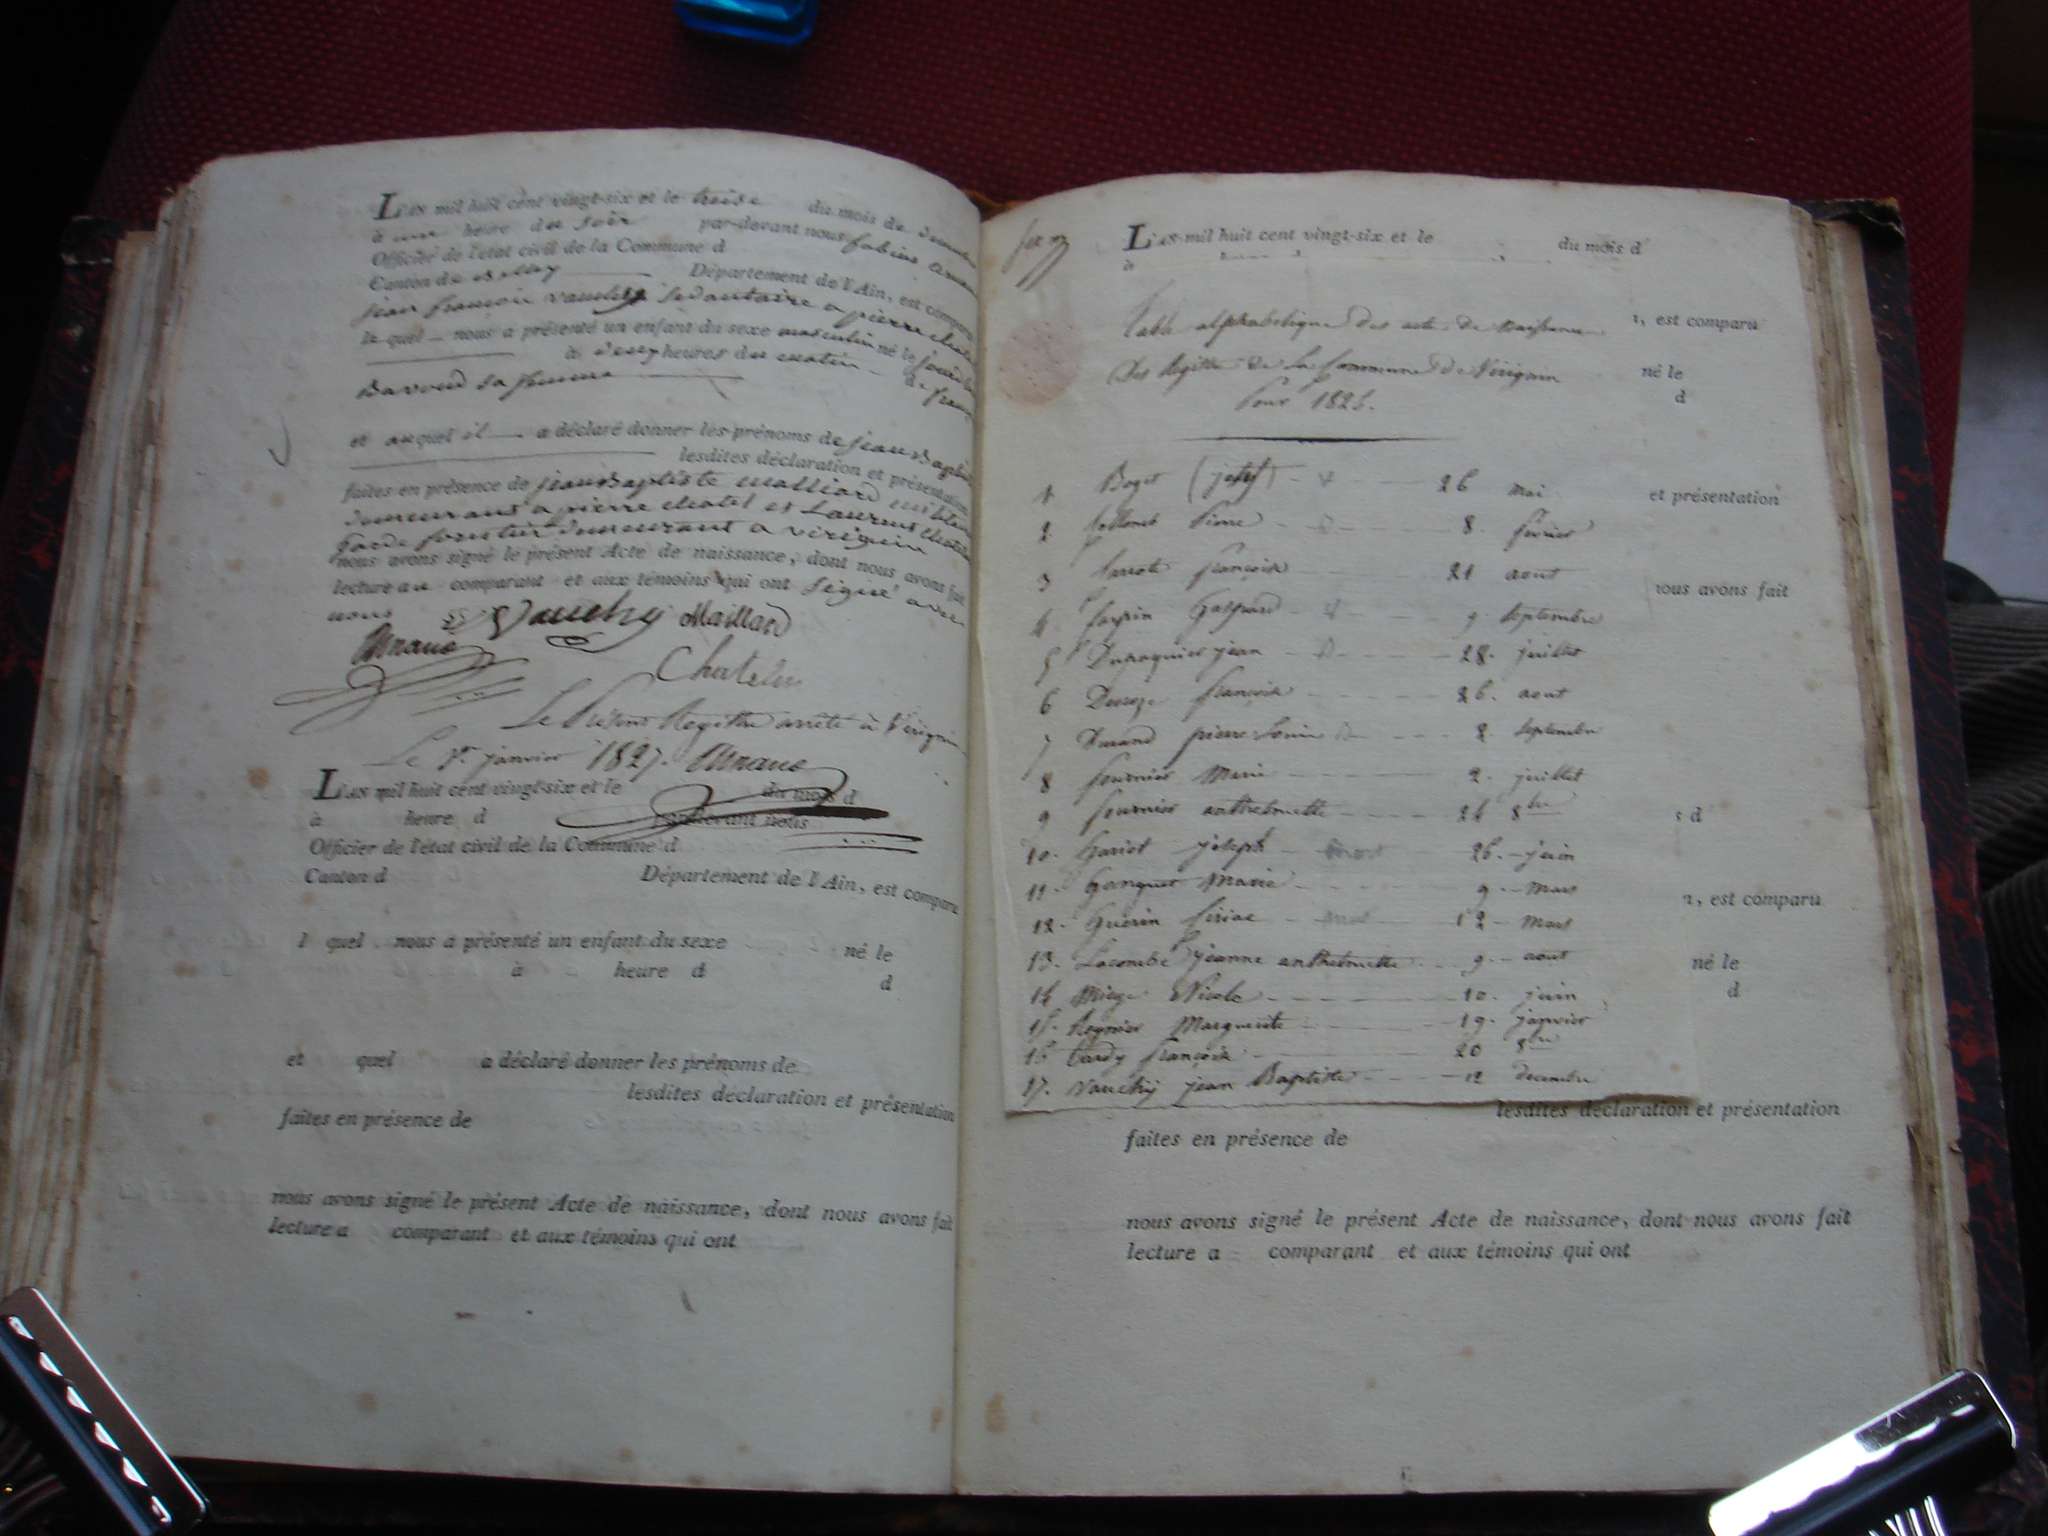 L'AN mil huit cent vingt-six et le treize du mois de
à une heure du soir par-devant nous fabien
Officier de l'état civil de la Commune d
Canton de Belley Département de l'Ain, est comparu
jean françois vauchy sedantaire a pierre chatel
le quel nous a présenté un enfant du sexe masculin né le jour d'hier
à heures du matin d
Bavoud sa femme
et auquel il a déclaré donner les prénoms de jean Baptiste
lesdites déclaration et présentation
faites en présence de jean Baptiste malliard
demeurant a pierre chatel et Laurent chatelin
garde forestier demeurant a virignin
nous avons signé le présent Acte de naissance, dont nous avons fait
lecture au comparant et aux témoins qui ont signé avec
nous Vauchy Maillard
Chatelin
Le Présent Registre arrêté à Virignin
Le 1er janvier 1827.
L'AN mil huit cent vingt-six et le du mois d
à heure d par-devant nous
Officier de l'état civil de la Commune d
Canton d Département de l'Ain, est comparu
l quel nous a présenté un enfant du sexe né le
à heure d d
et quel a déclaré donner les prénoms de
lesdites déclaration et présentation
faites en présence de
nous avons signé le présent Acte de naissance, dont nous avons fait
lecture a comparant et aux témoins qui ont
L'AN mil huit cent vingt-six et le du mois d
à
Table alphabetique des actes de naissance
, est comparu
Des Registres de la Commune de Virignin
né le
d
Pour 1826.
1. Boget (joseph) 26 mai
et présentation
2. Pierre 8. fevrier
3 françoise 21 aout
nous avons fait
4. Gaspard 9 septembre
5 Dupasquier jean 28. juillet
6 françoise 26. aout
7 Durand pierre Louis 2. septembre
8 fournier Marie 2. juillet
9 fournier anthelmette 24 8bre
s d
10. Gariod joseph mort 26. juin
11. Marie 9. mars
n, est comparu
12. Guérin mort 12 mars
13. Lacombe jeanne anthelmette 9. aout
né le
14 Miege Nicole 10. juin
d
15. Reynier Marguerite 19. janvier
16 Tardy françoise 20 8bre
17. Vauchy jean Baptiste 12 decembre
lesdites déclaration et présentation
faites en présence de
nous avons signé le présent Acte de naissance, dont nous avons fait
lecture a comparant et aux témoins qui ont